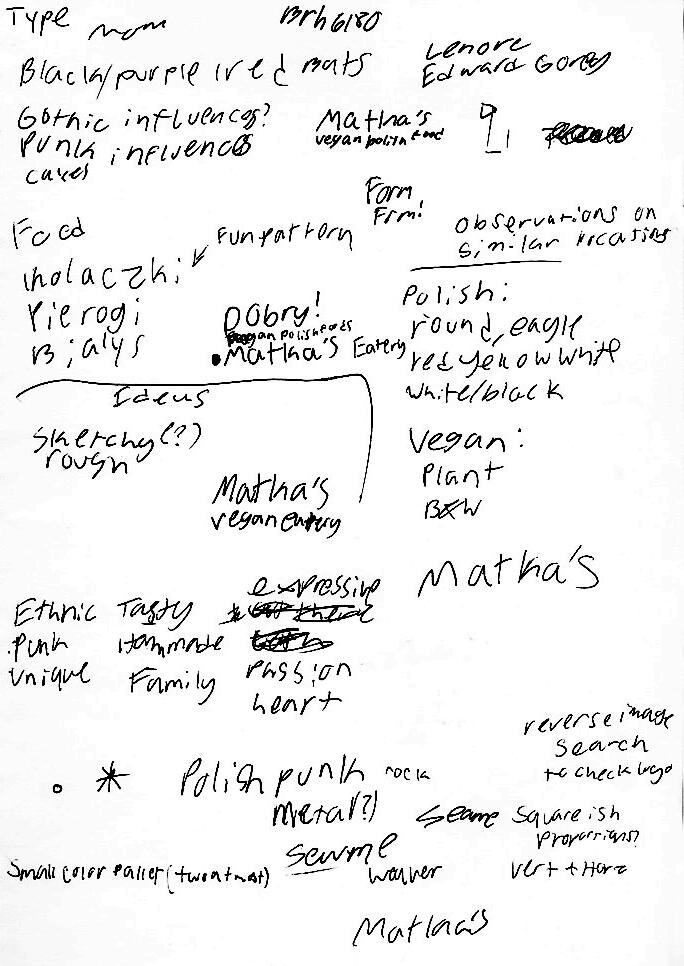 Type mom
Brh6180
Black/purple/red bats
Lenore
Edward Gorey
Gothic influences?
Punk influences
caves
Matka's
vegan polish food
Form
Frm!
Food
Fun pattern
Observations on
similar locations
Kholaczki
Pierogi
Bialys
Dobry!
Matka's Eatery
Polish:
round, eagle
red yellow white
white/black
Ideas
Sketchy(?)
rough
Vegan:
Plant
B&W
Matka's
vegan eatery
Matka's
expressive
Ethnic Tasty
Punk Hommade
Unique Family
passion
heart
reverse image
search
to check logo
Polish punk rock
metal?)
Squareish
Proportions?
Small color pallet (two at most)
vert + Horz
Matka's